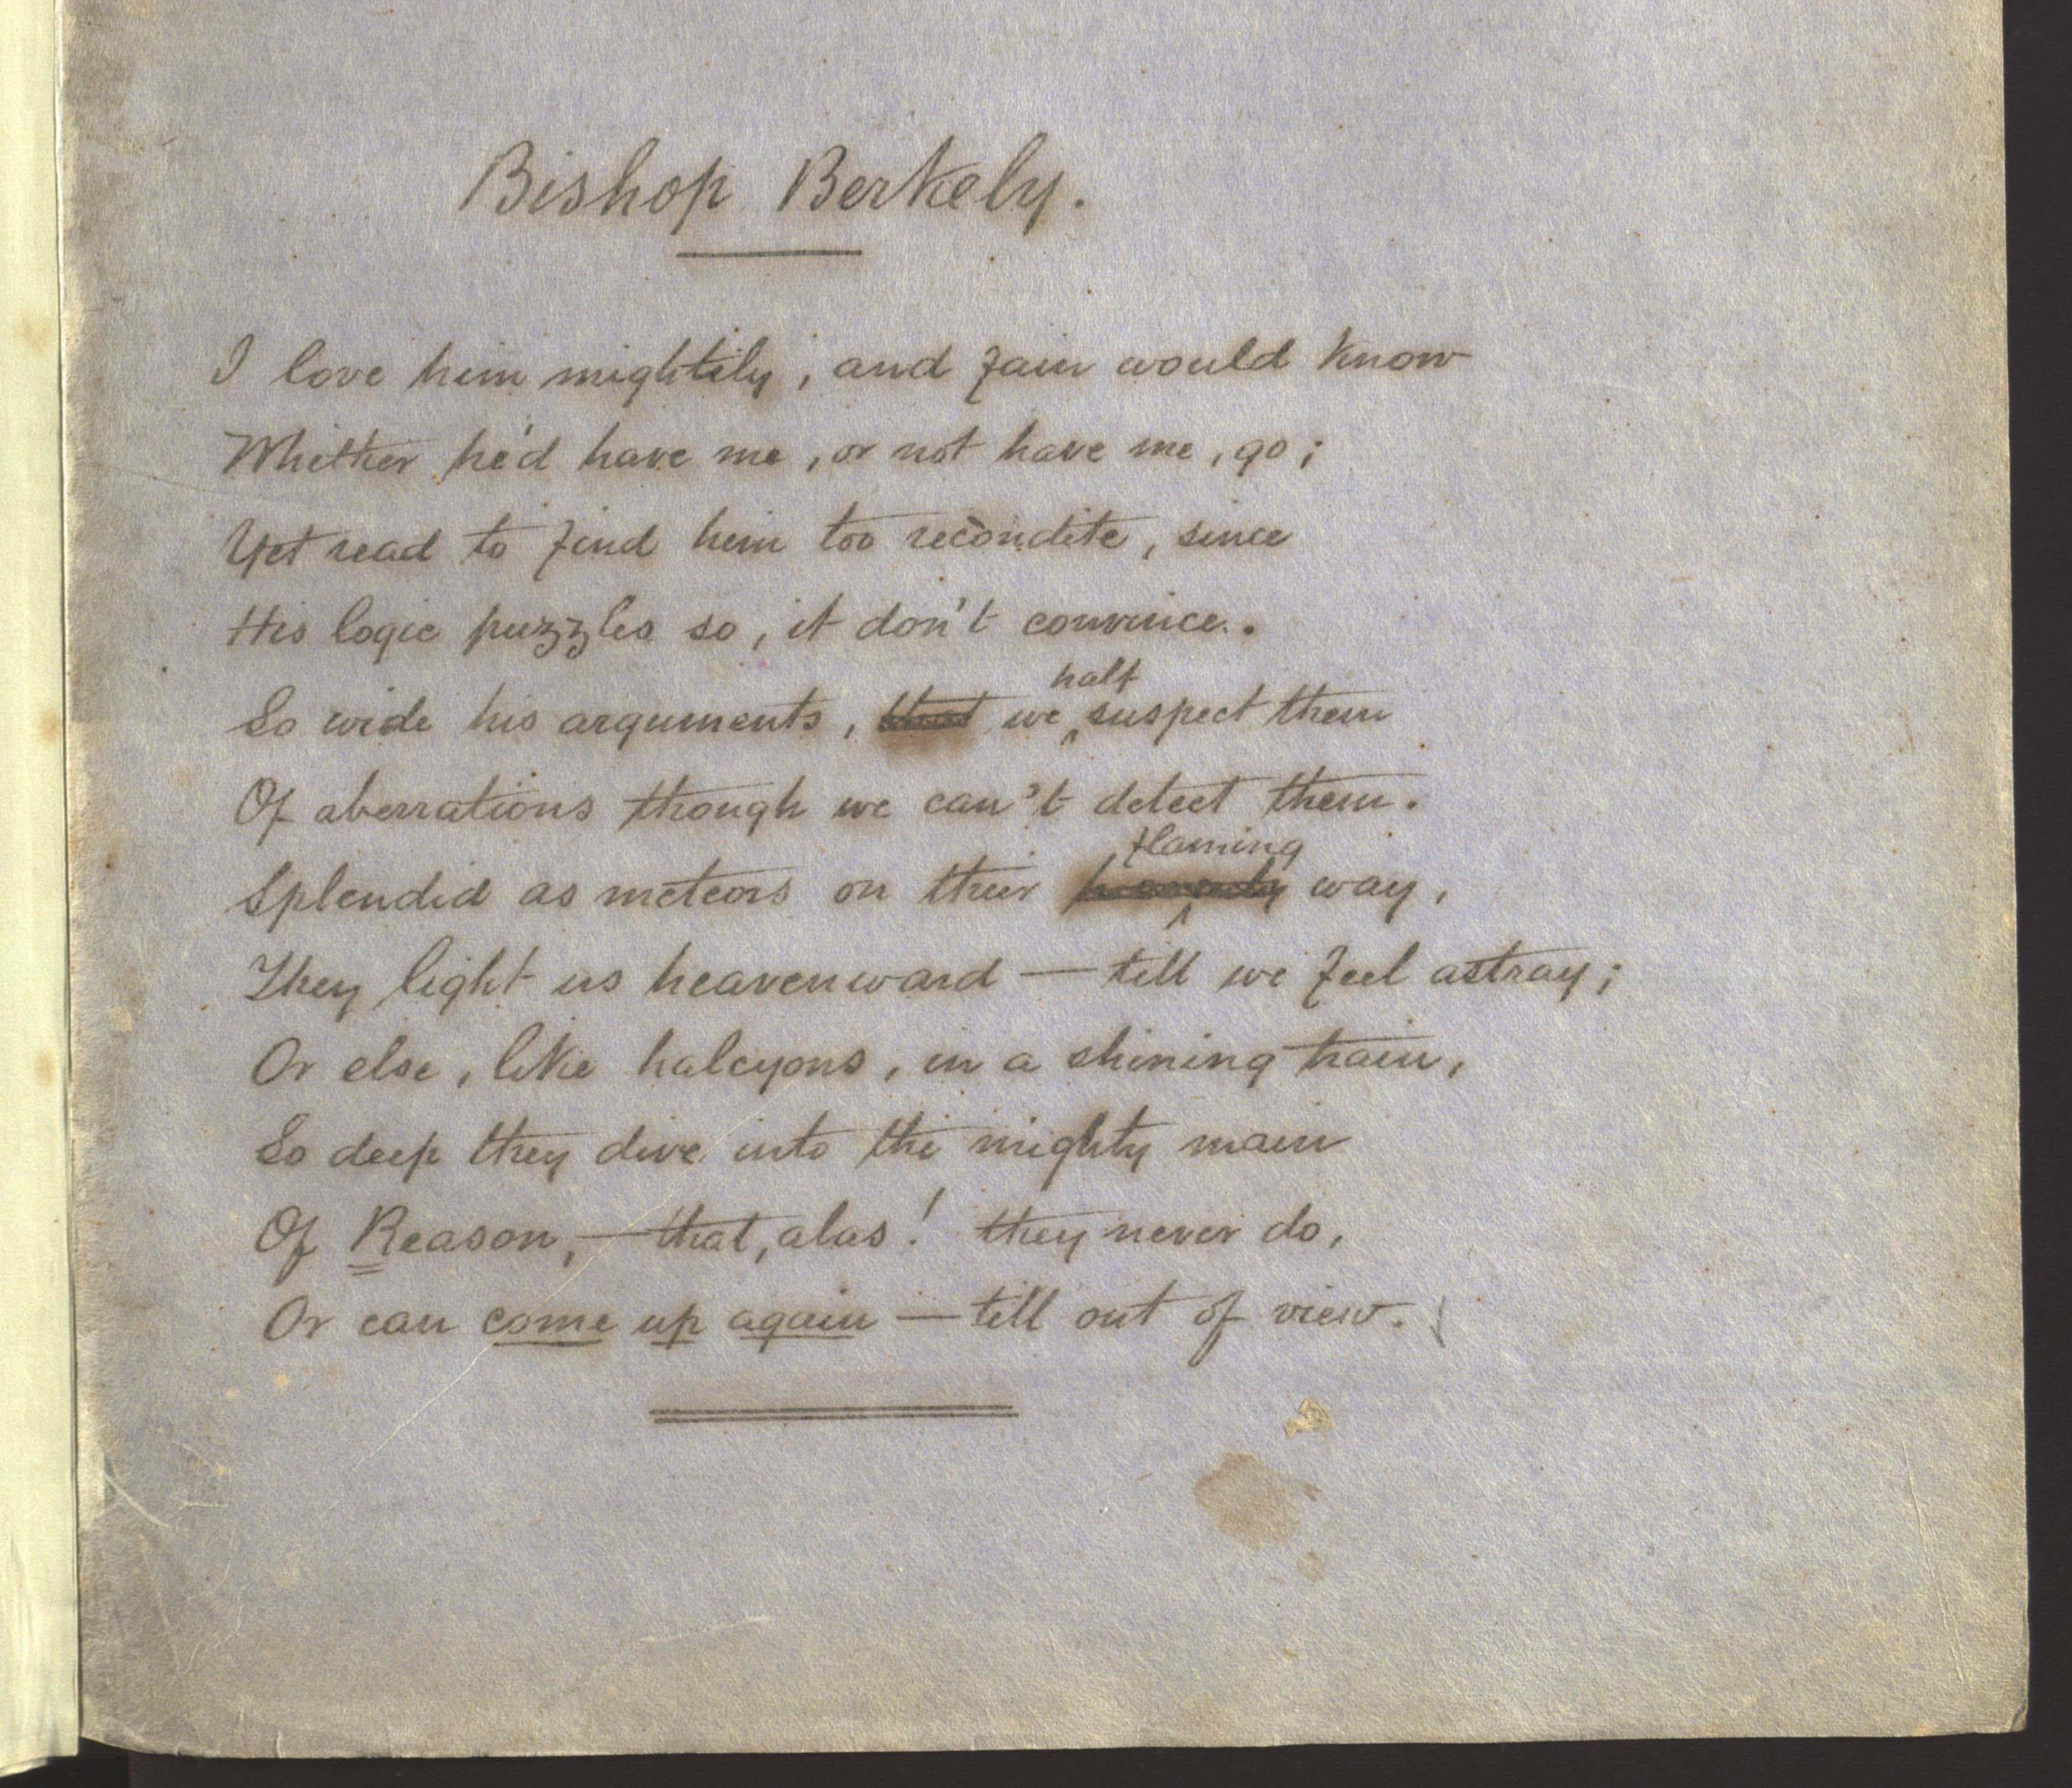 Bishop Berkely.
I love him mightily, and fain would know
Whither he'd have me, or not have me, go;
Yet read to find him too recondite, since
His logic puzzles so, it don't convince.
So wide his arguments, that we half suspect them
Of aberrations though we can't detect them.
Splendid as meteors on their flaming way,
They light us heavenward — till we feel astray;
Or else, like halcyons, in a shining train,
So deep they dive into the mighty main
Of Reason, — that, alas! they never do,
Or can come up again — till out of view.